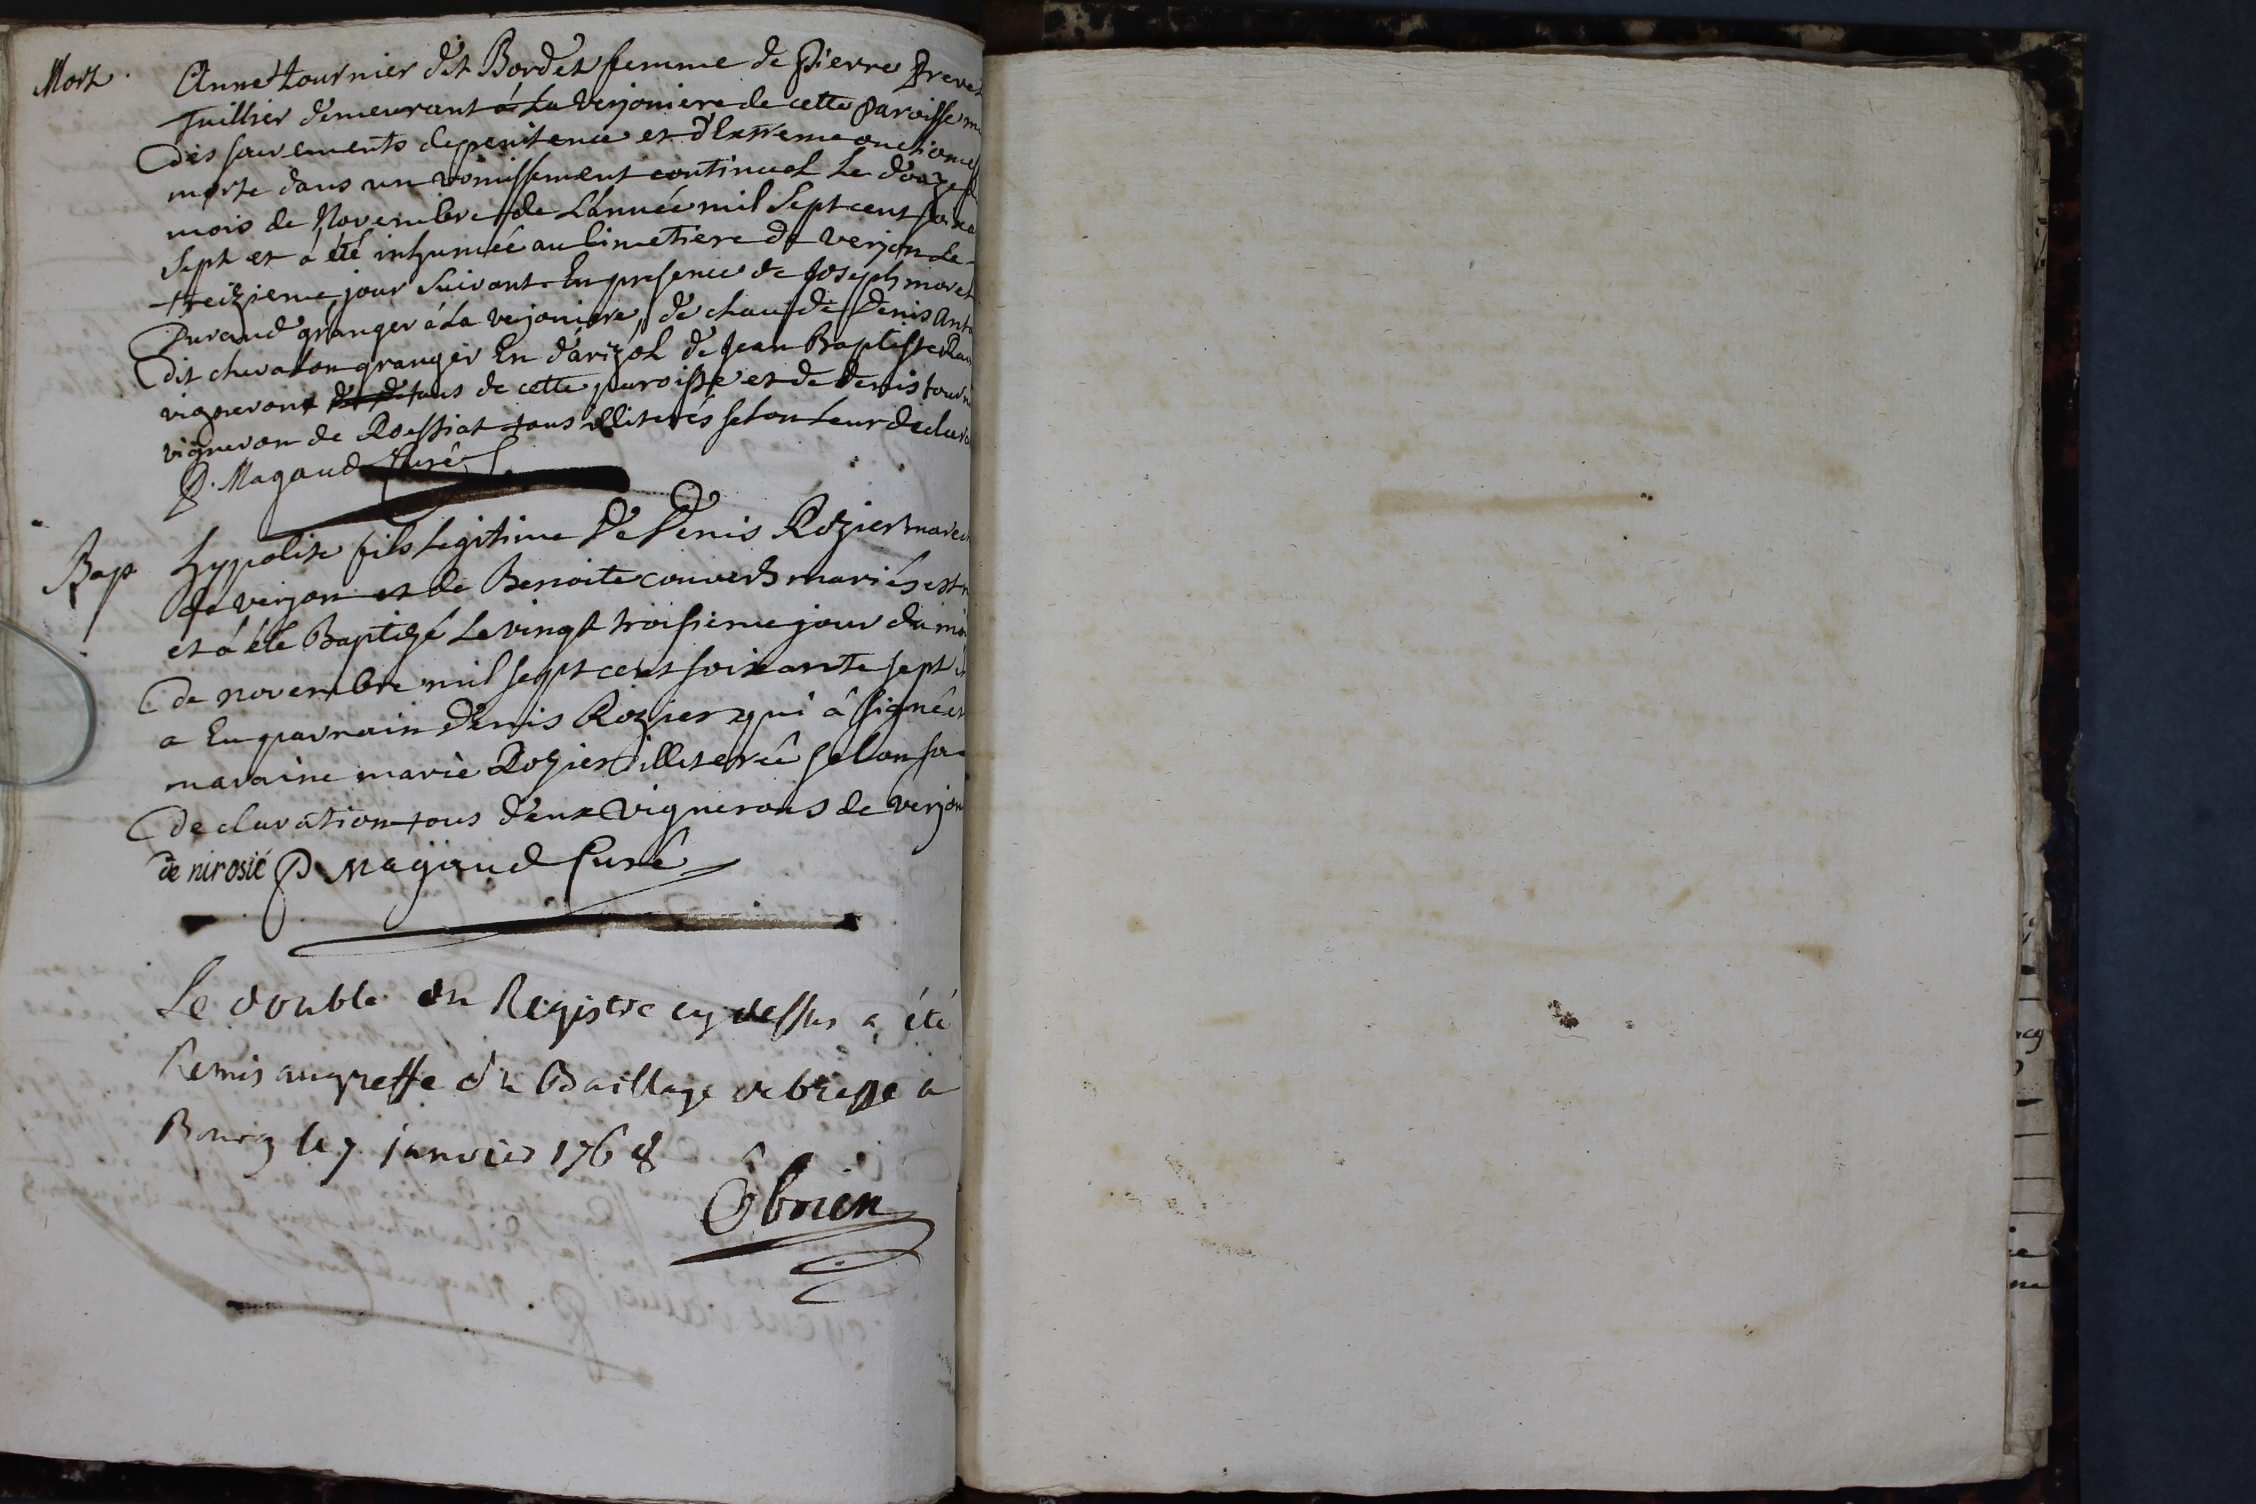 Mort. Anne tournier dit Bordet femme de Pierre Brevet
Tuillier demeurant á La verjoniere de cette paroisse
des sacrements de penitence et d'Extreme onction
morte dans un vomissement continuel Le douze
mois de Novembre de L'année mil Sept cent
Sept et a été inhumée au Cimetiere de verjon Le
treizieme jour Suivant En presence de Joseph moret
Durand granger á La verjoniere, de claude Denis
dit chevalon granger En d'arizol de Jean Baptiste
vigneront tous de cette paroisse et de Denis
vigneron de Roissiat tous illiterés selon Leur
P. Magaud Curé
Bap Hypolite fils Legitime De Denis Rozier
de verjon et de Benoite convert mariés est
et á été Baptizé Le vingt troisieme jour du
de novembre mil sept cent soixante sept
a Eu parrain Denis Rozier qui á signé et
maraine marie Rozier illiterée selon sa
declaration tous deux vignerons de verjon
de ni rosié P Magaud Curé
Le double du Registre cy dessus a été
Remis au greffe du Baillage de bresse a
Bourg le 7 janvier 1768
Obrien